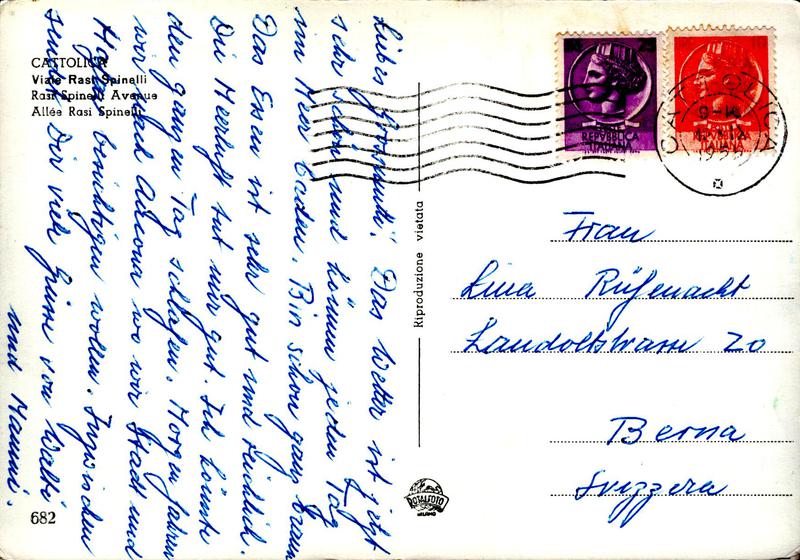 CATTOLICA
Viale Rasi Spinelli
Rasi Spinelli Avenue
Allée Rasi Spinelli
Liebes Grossmutti! Das Wetter ist jetzt
sehr schön und können jeden Tag
im Meer baden. Bin schon ganz braun
Das Essen ist sehr gut und reichlich.
Die Meerluft tut mir gut. Ich könnte
den ganzen Tag schlafen. Morgen fahren
wir nach Ancona wo wir Stadt und
Hafen besichtigen wollen. Inzwischen
sendet Dir viel Grüsse von Walti
und Mammi.
682
Riproduzione vietata
ROTALFOTO
MILANO
REPVBBLICA
ITALIANA
REPVBBLICA
ITALIANA
CATTOLICA
Frau
Lina Rüfenacht
Landoltstrasse 20
Berna
Svizzera